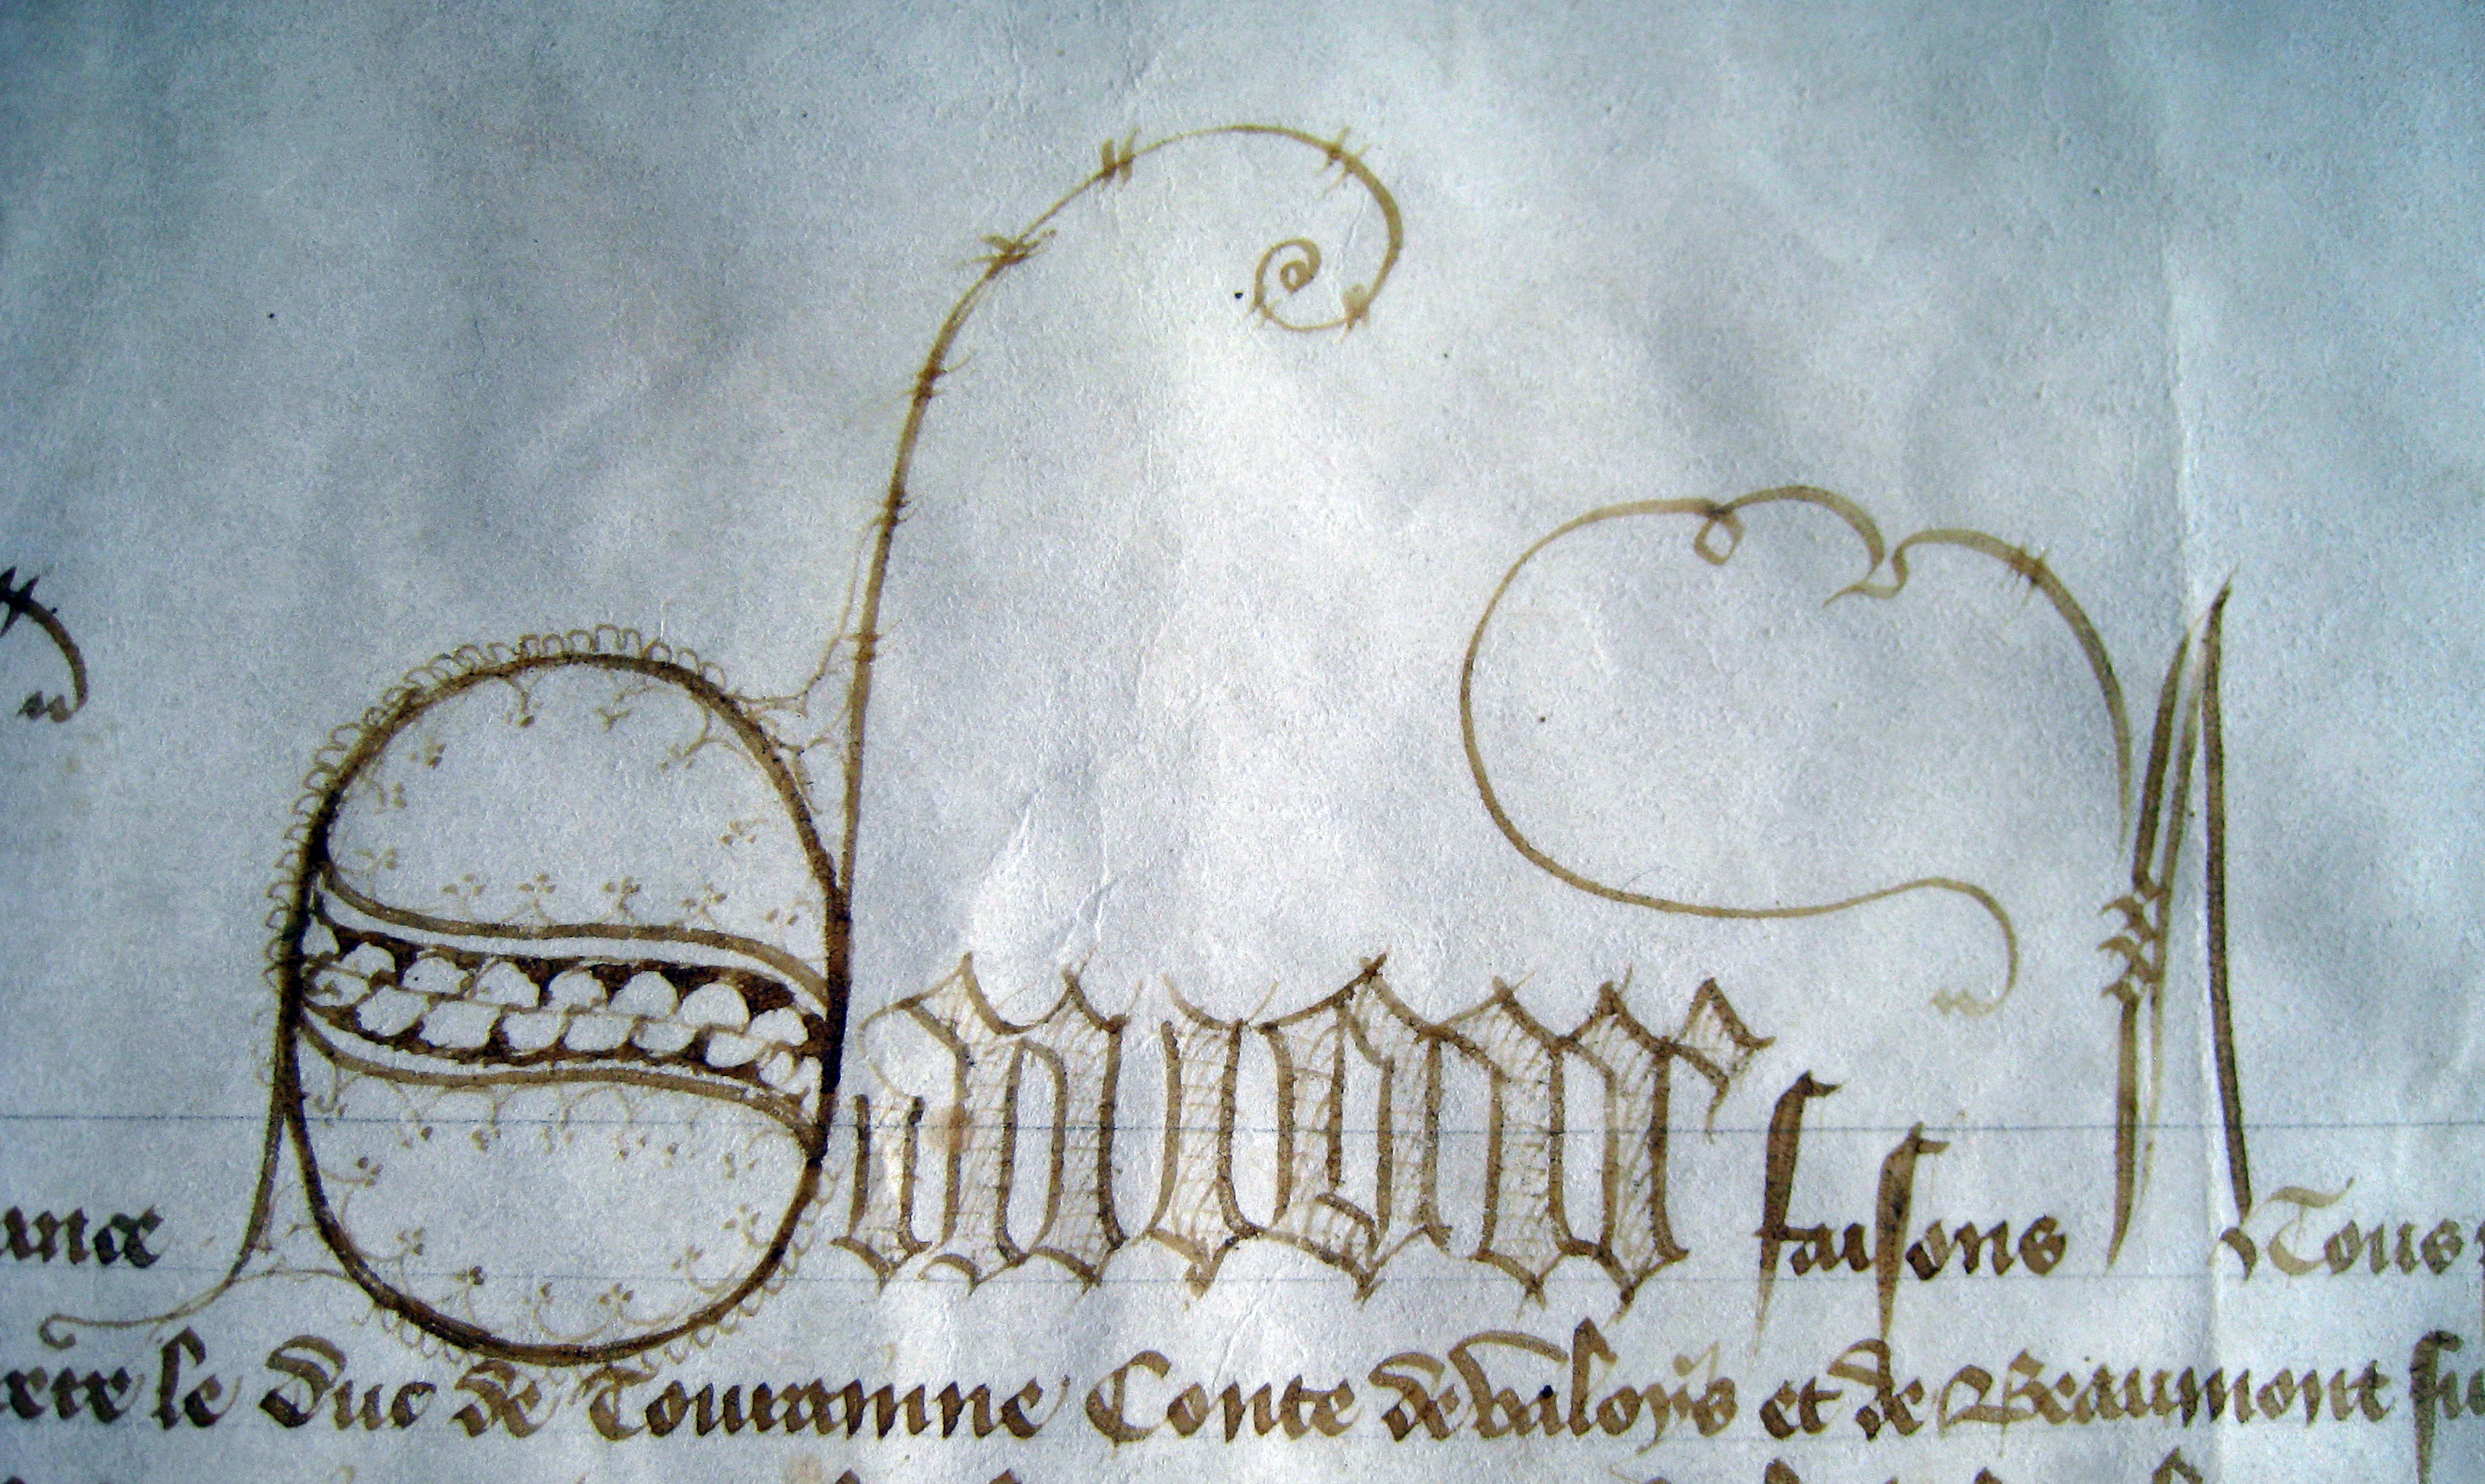 ance Savoir faisons A Tous
le duc de Touraınne Conte de Valoys et de Beaumont